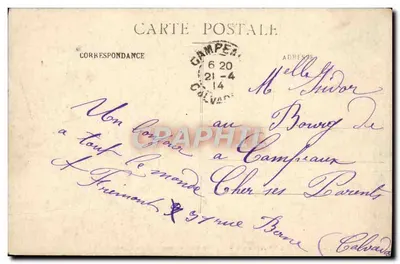 CARTE POSTALE
CORRESPONDANCE
ADRESSE
CAMPEA
6 20
21-4
14
CALVADOS
Un bonjour
a tout le monde
Fremont
37 rue
Melle
au Bourg de
a Campeaux
Cher ses Parents
(Calvados
Cartes